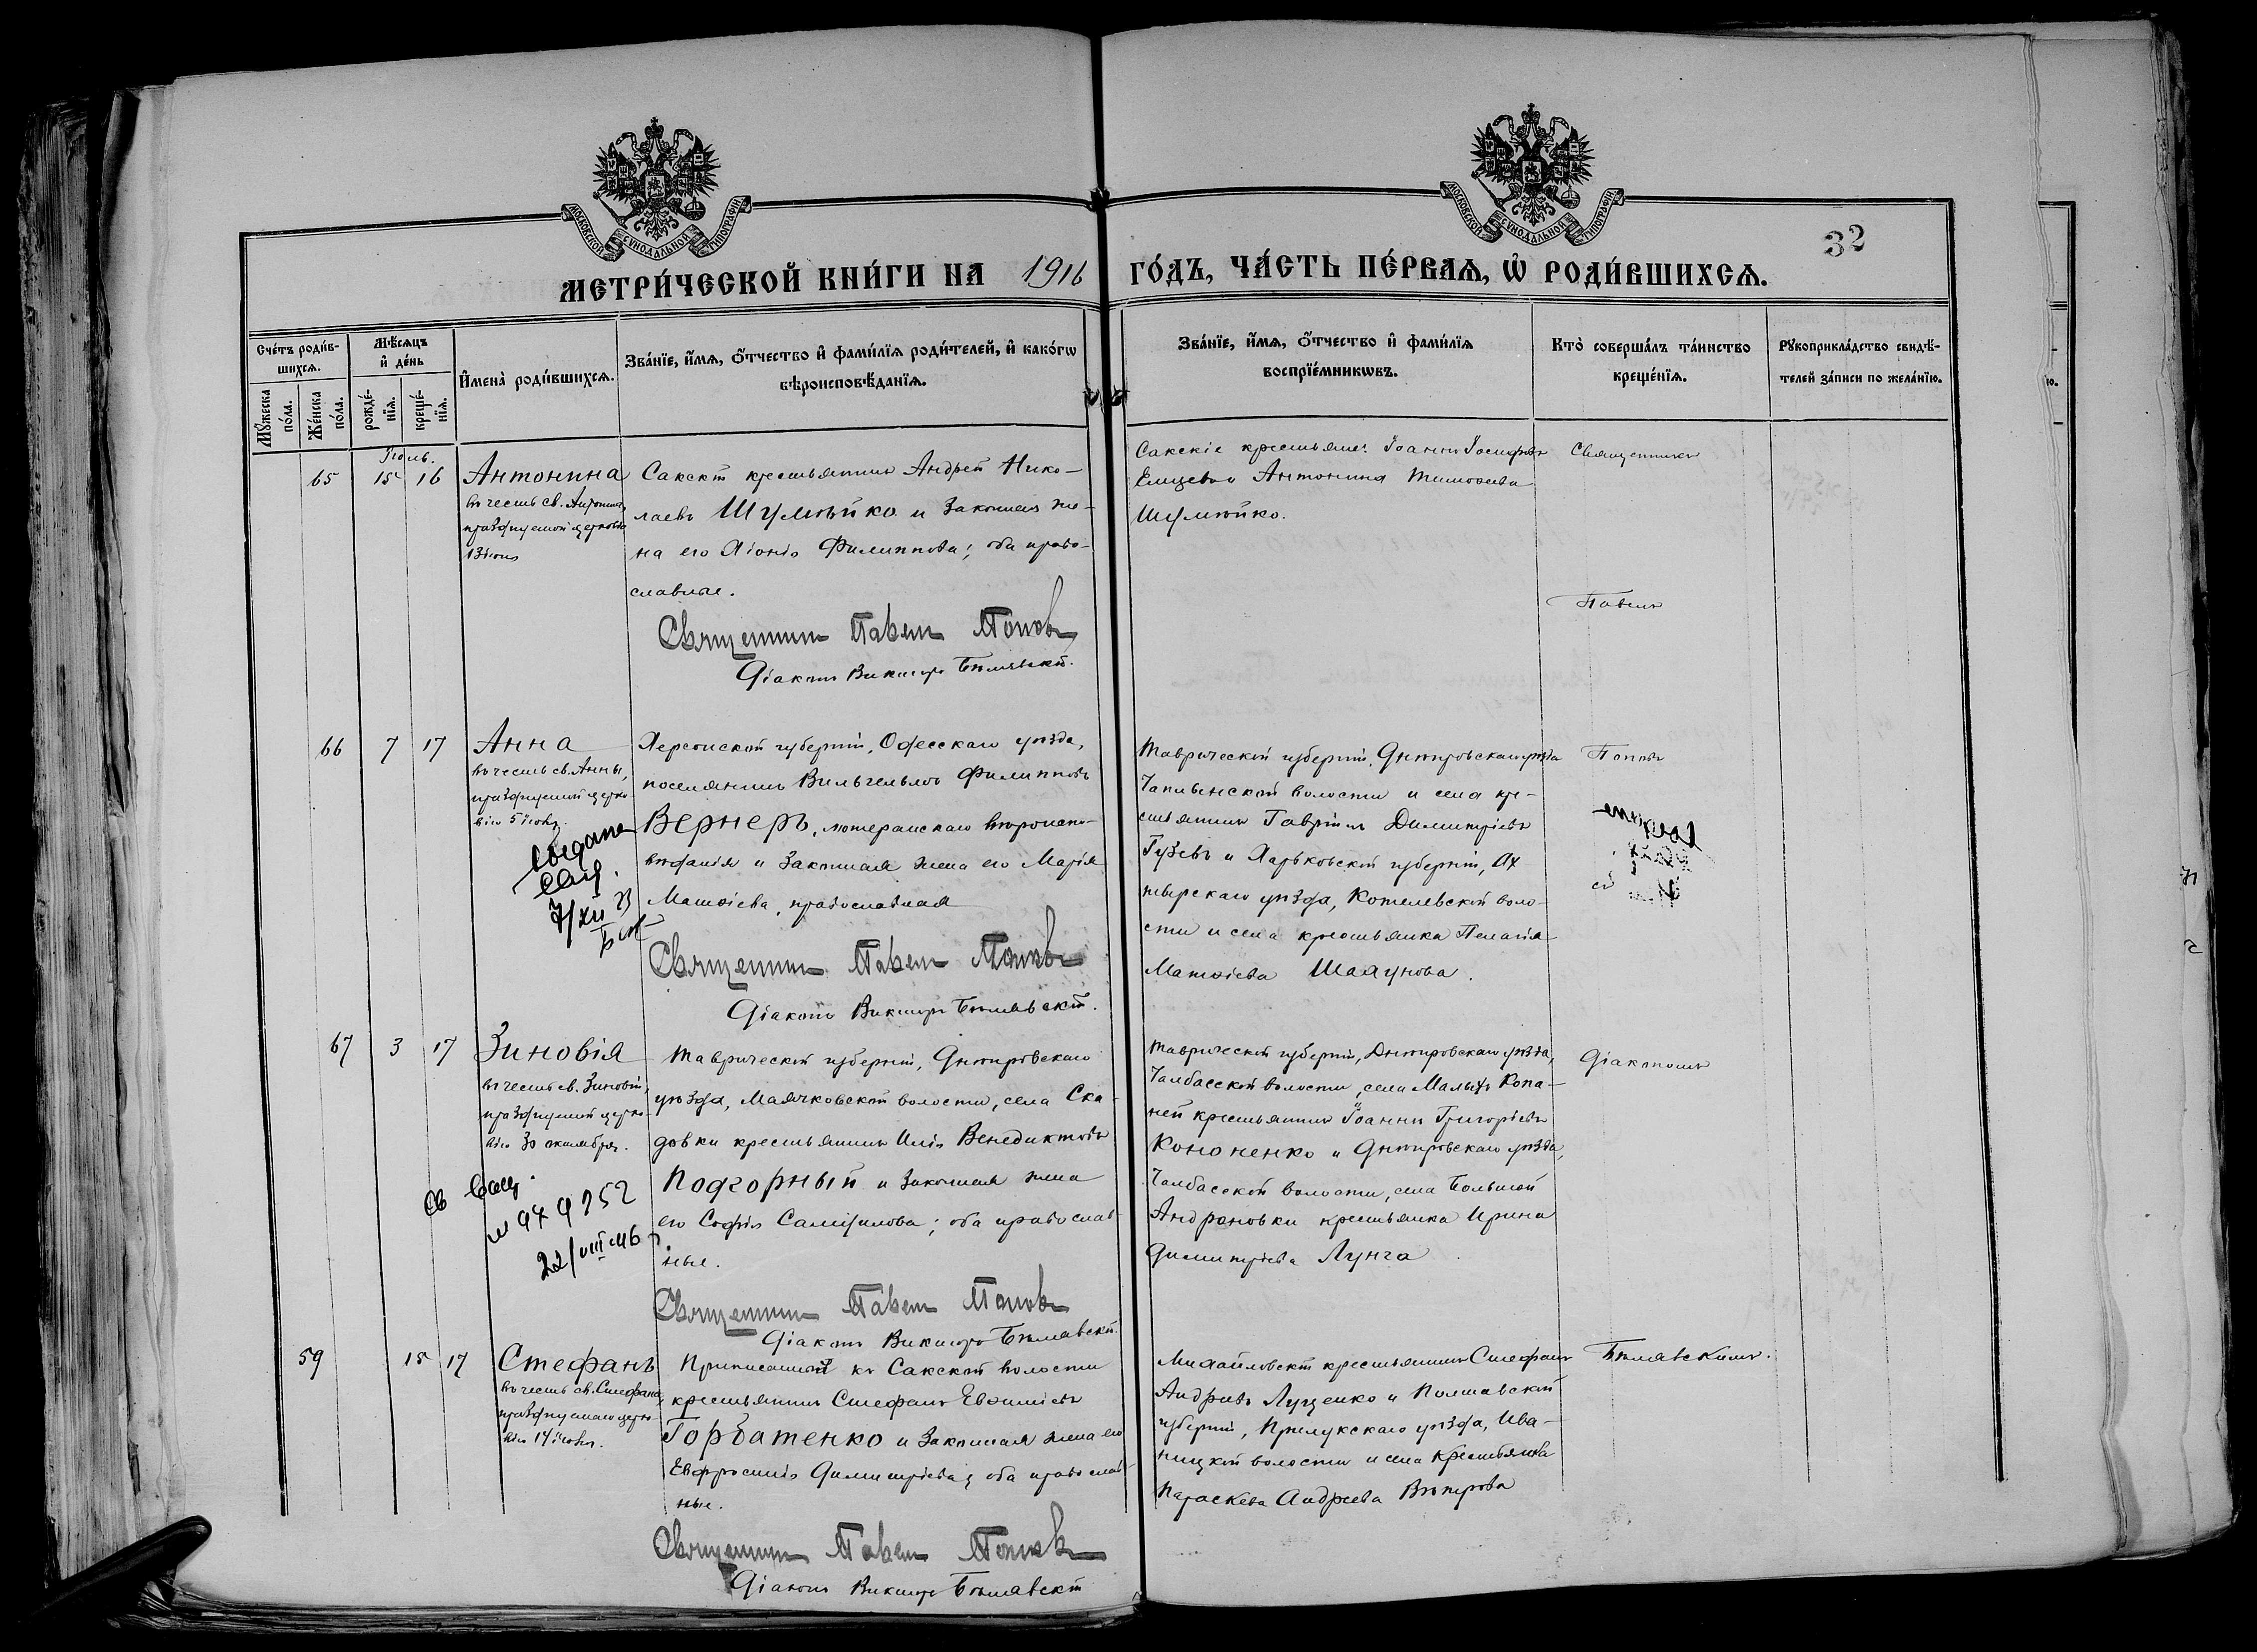 МОСКОВСКОЙ СѴНОДАЛЬНОЙ ТИПОГРАФІИ
МОСКОВСКОЙ СѴНОДАЛЬНОЙ ТИПОГРАФІИ
32
МЕТРИ́ЧЕСКОЙ КНИ́ГИ НА 1916 ГО́ДЪ, ЧА́СТЬ ПЕ́РВАѦ, Ѽ РОДИ́ВШИХСѦ.
Сче́тъ роди́в-
шихсѧ.
Мꙋ́жеска по́ла.
Же́нска по́ла.
Мѣ́сѧцъ и҆ де́нь
рожде́-нїѧ.
креще́-нїѧ.
И҆мена̀ роди́вшихсѧ.
Зва́нїе, и҆́мѧ, ѻ҆́тчество и҆ фами́лїѧ роди́телей, и҆ како́гѡ
вѣроисповѣ́данїѧ.
Зва́нїе, и҆́мѧ, ѻ҆́тчество и҆ фами́лїѧ
воспрїе́мникѡвъ.
Кто̀ соверша́лъ та́инство
креще́нїѧ.
Рꙋкоприкла́дство свидѣ́-
телей за́писи по жела́нїю.
Іюль.
65 15 16 Антонина
въ честь св. Антонины,
празднуемой церковію
13 іюня
Сакскій крестьянинъ Андрей Нико-
лаевъ Шумѣйко и законная же-
на его Хіонія Филиппова; оба право-
славные.
Священникъ Павелъ Поповъ
Діаконъ Викторъ Бѣлявскій.
Сакскіе крестьяне: Іоаннъ Іосифовъ
Антонина Тимоѳеева
Шумѣйко.
Священникъ
Павелъ
66 7 17 Анна
въ честь св. Анны,
празднуемой церко-
вію
Херсонской губерніи, Одесскаго уѣзда,
поселянинъ Вильгельмъ Филипповъ
Вернеръ, лютеранскаго вѣроиспо-
вѣданія и законная жена его Марія
Матѳіева, православная
Священникъ Павелъ Поповъ
Діаконъ Викторъ Бѣлявскій.
Таврической губерніи, Днѣпровскаго уѣзда
волости и села кре-
стьянинъ Гавріилъ Димитріевъ
Гузевъ и Харьковской губерніи, Ах-
тырскаго уѣзда, Котелевской воло-
сти и села крестьянка Пелагія
Матѳіева
Поповъ
7/XII 23
67 3 17 Зиновія
въ честь св. Зиновіи,
празднуемой церко-
вію 30 октября.
Таврической губерніи, Днѣпровскаго
уѣзда, Маячковской волости, села Ска-
довки крестьянинъ Илія Венедиктовъ
Подгорный и законная жена
его Софія Самуилова; оба православ-
ные.
Священникъ Павелъ Поповъ
Діаконъ Викторъ Бѣлявскій.
Таврической губерніи, Днѣпровскаго уѣзда,
Чалбасской волости, села Малыхъ Копа-
ней крестьянинъ Іоаннъ Григорьевъ
Кононенко и Днѣпровскаго уѣзда,
Чалбасской волости, села Большой
Андроновки крестьянка Ирина
Димитріева Лунга
Діакономъ
22/VIII
59 15 17 Стефанъ
въ честь св. Стефана,
празднуемаго церко-
вію
Приписанный къ Сакской волости
крестьянинъ Стефанъ Евѳиміевъ
Горбатенко и законная жена его
Евфросинія Димитріева; оба православ-
ные.
Священникъ Павелъ Поповъ
Діаконъ Викторъ Бѣлявскій
Михайловскій крестьянинъ Стефанъ
Андреевъ Луценко и Полтавской
губерніи, Прилукскаго уѣзда, Ива-
ницкой волости и села крестьянка
Параскева Андреева Вѣтрова
Бѣлявскимъ.